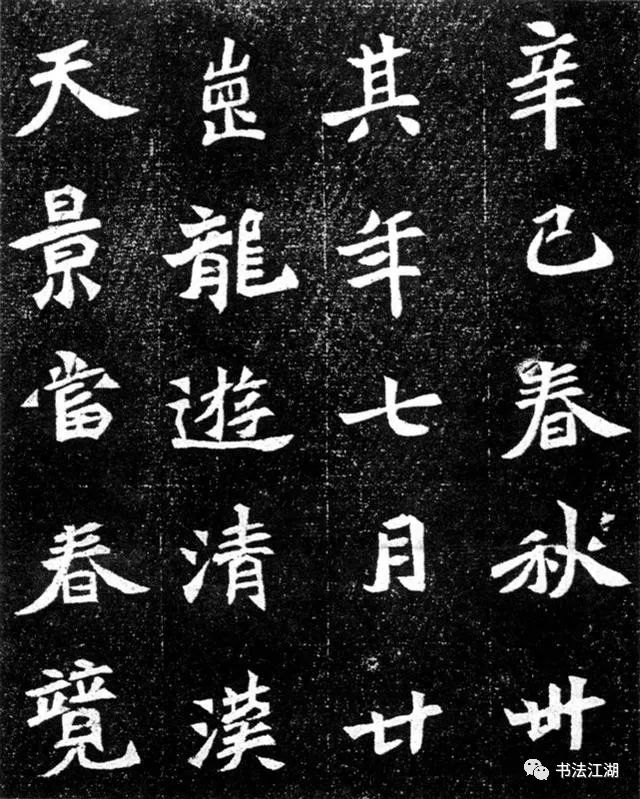 辛巳春秋卅
其年七月廿
龍遊清漢
天景當春
书法江湖